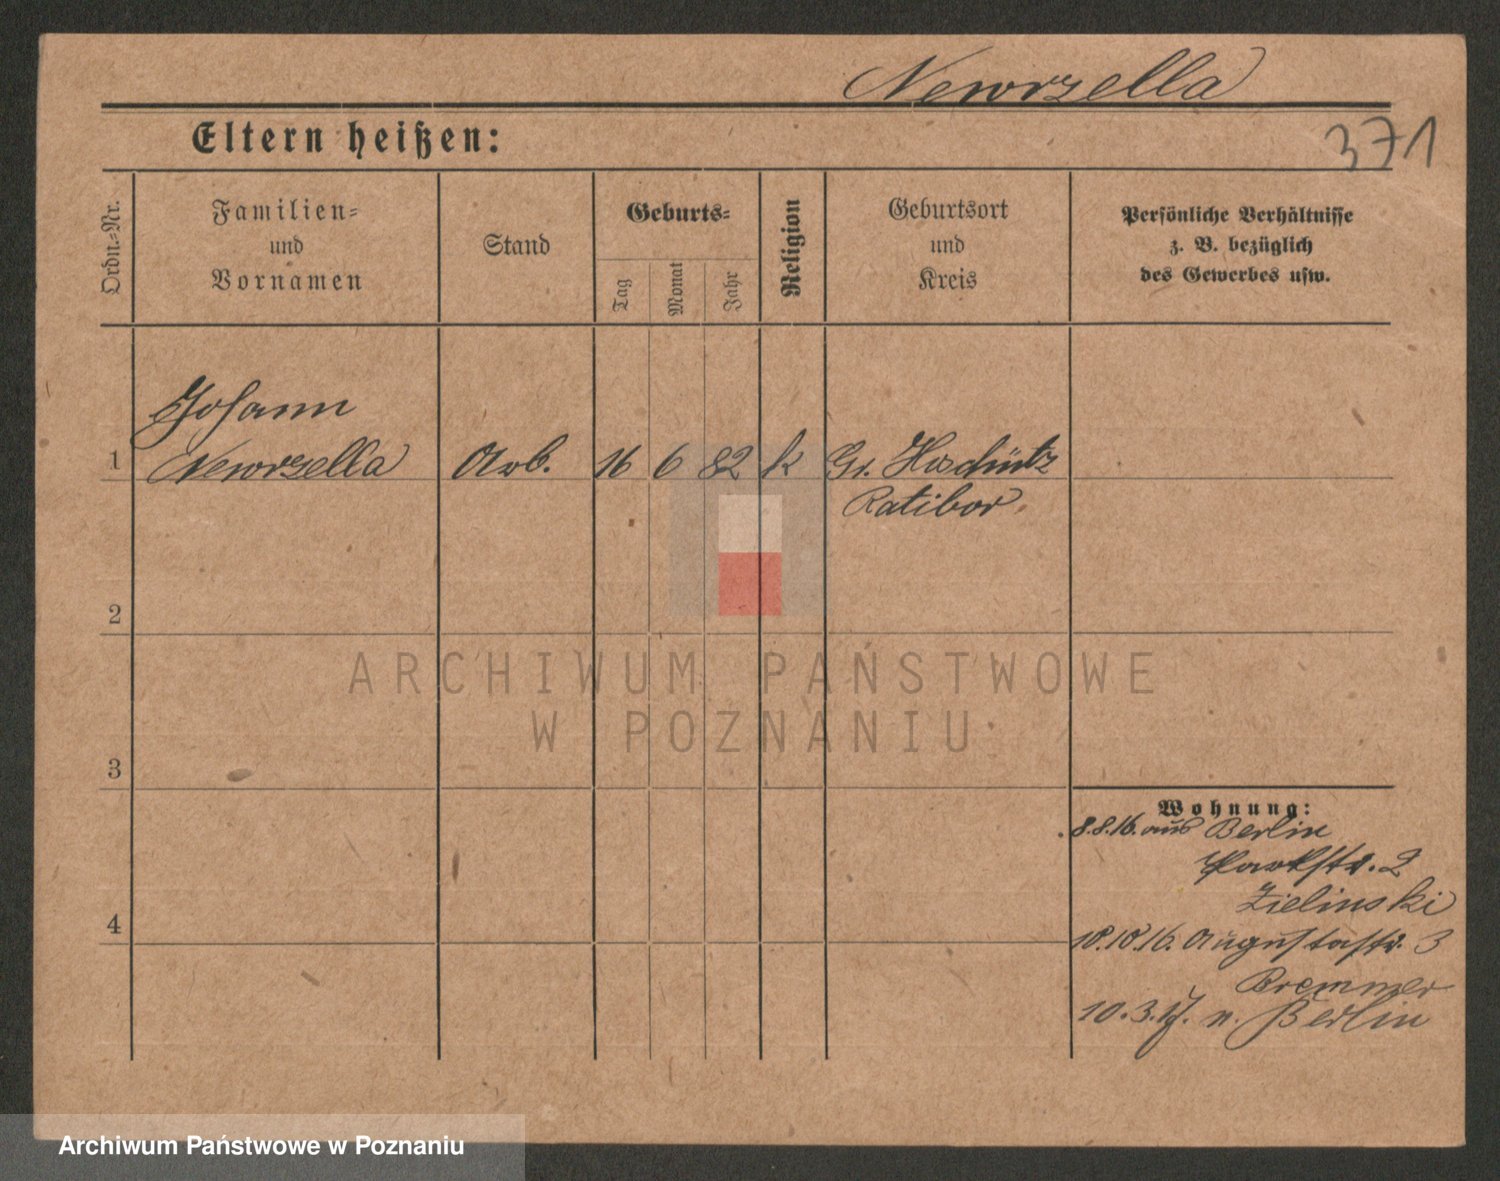 Newrzella
371
Eltern heißen:
Ordn.-Nr.
Familien-
und
Vornamen
Stand
Geburts-
Tag
Monat
Jahr
Religion
Geburtsort
und
Kreis
Persönliche Verhältnisse
z. B. bezüglich
des Gewerbes usw.
Johann
1 Newrzella Arb. 16 6 82 k Gr.
Ratibor
2
3
4
Wohnung:
8.8.16. aus Berlin
Parkstr. 2
Zielinski
18.10.16. Augustastr. 3
Bremmer
10.3.17. n. Berlin
ARCHIWUM PAŃSTWOWE
W POZNANIU
Archiwum Państwowe w Poznaniu